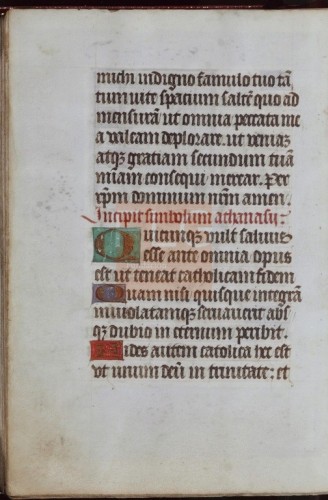 michi indigno famulo tuo tã
tum vite spacium saltẽ quo ad
mensurã ut omnia peccata me
a valeam deplorare. ut veniaȝ
atqȝ gratiam secundum tuã
miam consequi merear. Per
xpm dominum nr̃m amen.
Incipit simbolum athanasy:
Quicumqȝ vult saluus
esse ante omnia opus
est ut teneat catholicam fidem
Quam nisi quisque integrã
inuiolatamqȝ seruauerit abs
qȝ dubio in eternum peribit.
Fides autem catolica hec est
vt unum deũ in trinitate: et